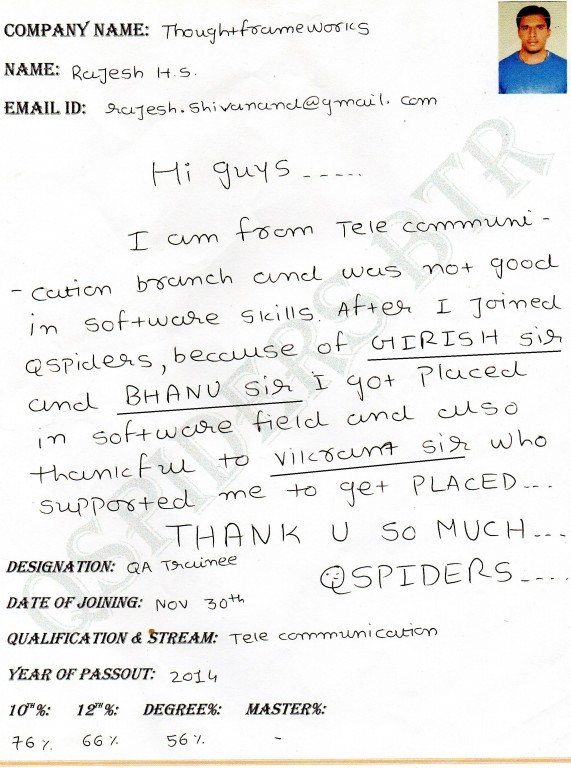 COMPANY NAME: Thoughtframeworks
NAME: Rajesh H.S.
EMAIL ID: rajesh.shivanand@gmail.com
Hi guys .....
I am from Tele communi -
- cation branch and was not good
in software skills. After I joined
QSpiders, because of GIRISH sir
and BHANU sir I got placed
in software field and also
thankful to vikrant sir who
supported me to get PLACED...
THANK U SO MUCH...
QSPIDERS....
DESIGNATION: QA Trainee
DATE OF JOINING: NOV 30th
QUALIFICATION & STREAM: Tele communication
YEAR OF PASSOUT: 2014
10TH%: 12TH%: DEGREE%: MASTER%:
76% 66% 56% -
QSPIDERS BTR